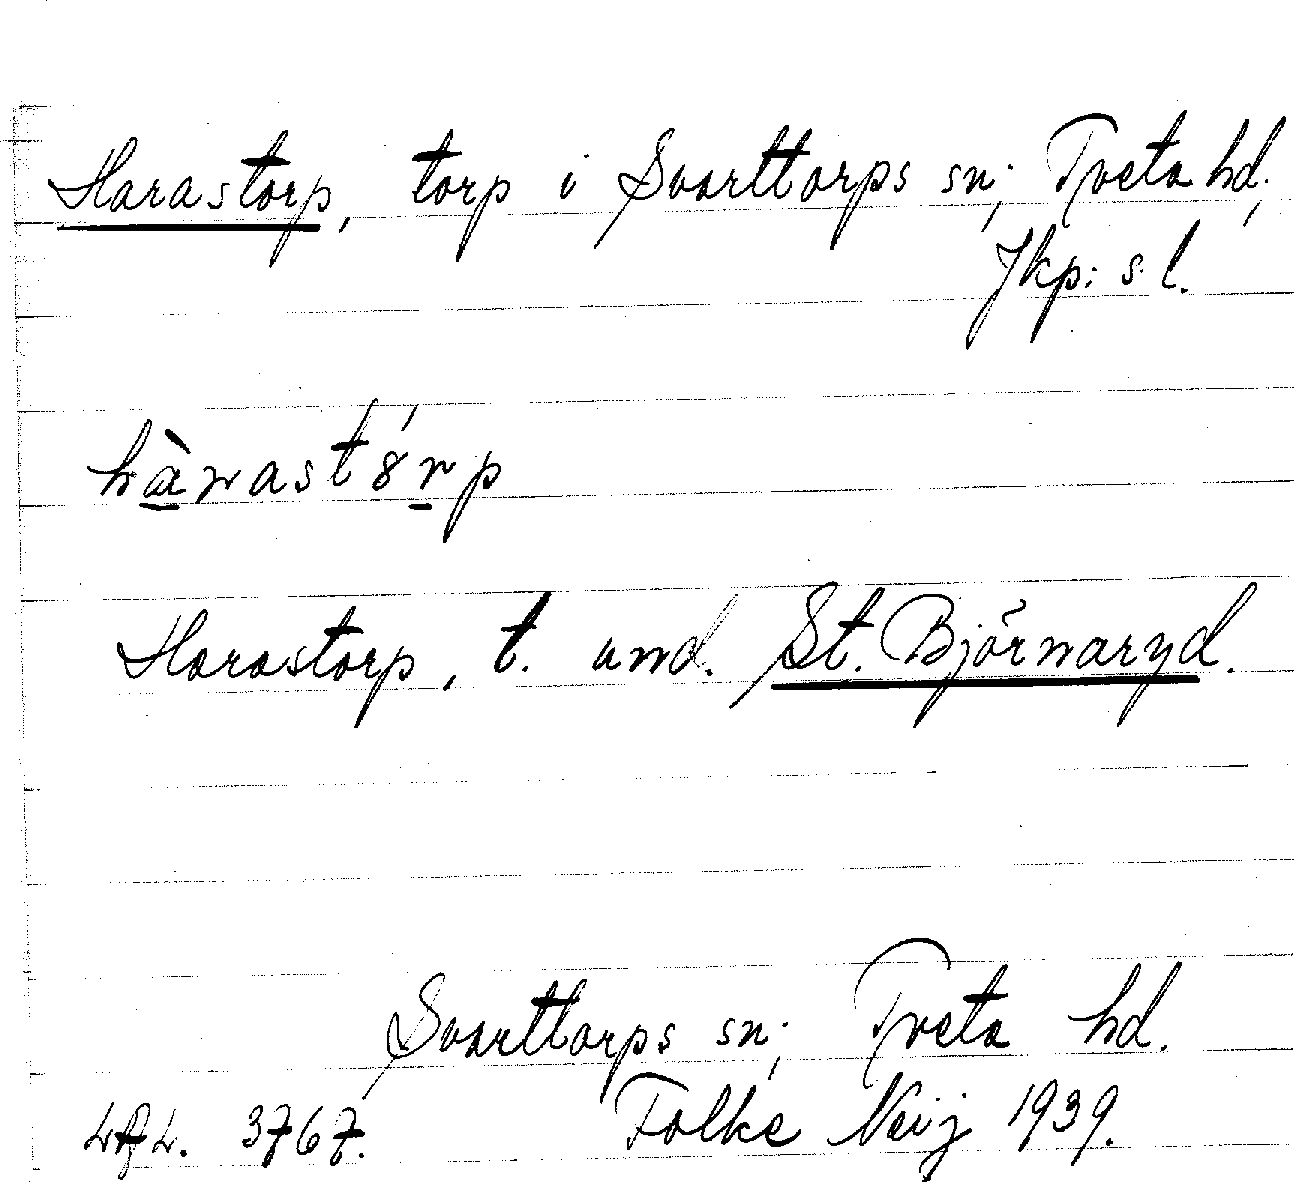 Harastorp, torp i Svarttorps sn; Tveta hd,
Jkp: s l.
hàrastórp
Harastorp, t. und. St. Björnaryd.
Svarttorps sn; Tveta hd.
3767. Folke Neij 1939.